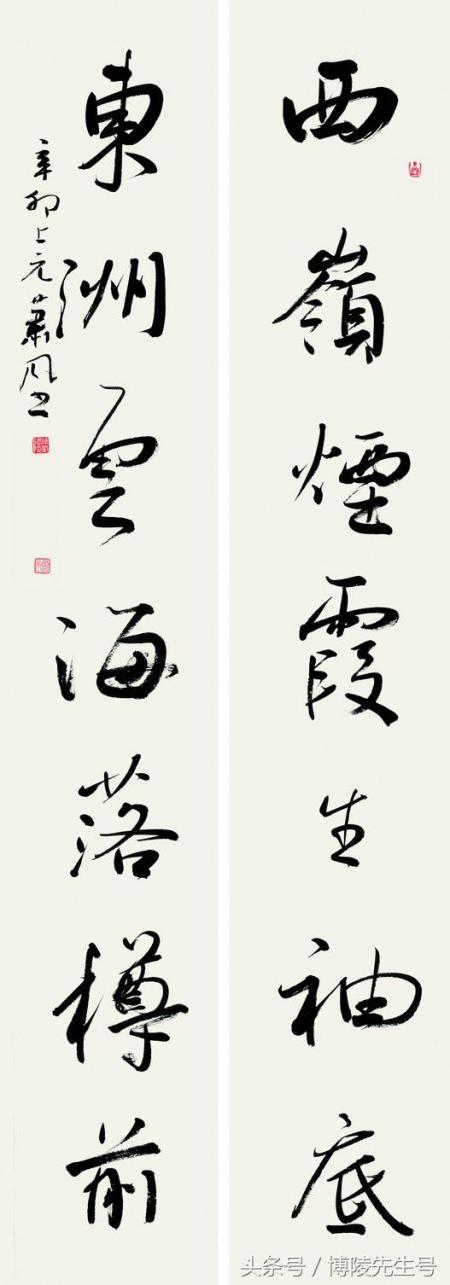 西嶺煙霞生袖底
東洲雲海落樽前
辛卯上元蕭風書
头条号 / 博陵先生号